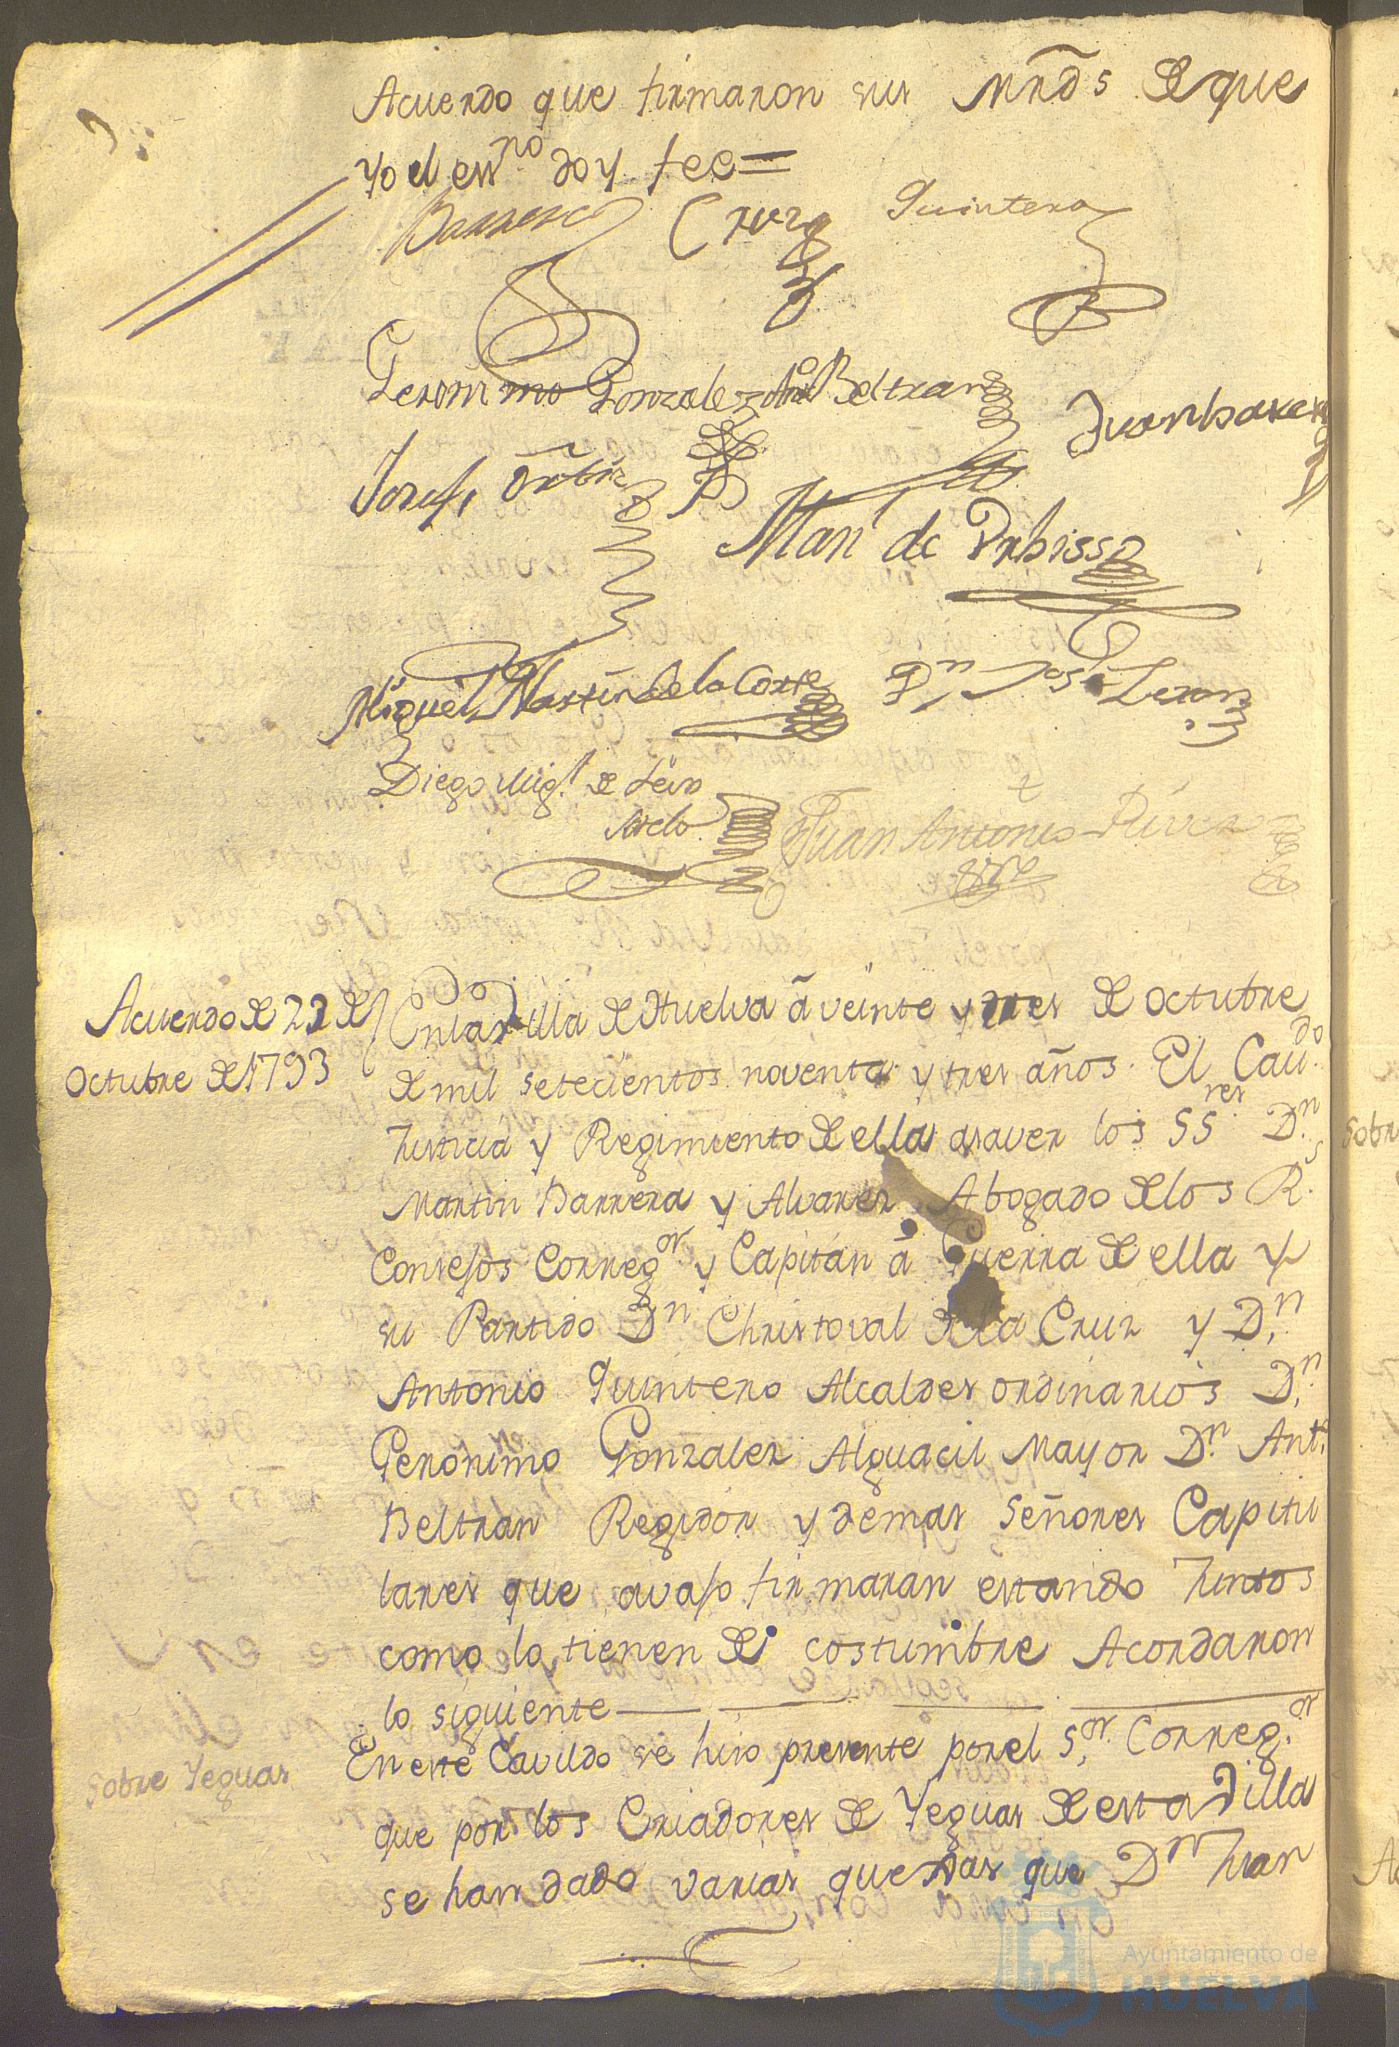 Acuerdo que firmaron sus Mrds de que
yo el essno doy fee =
Barrera Cruz Quintero
Geronimo Gonzalez Ant Beltran Juan
Josef Orbic
Man de Orbisso
Miguel Martin de la Corte Dn Jose
Diego Migl de
Juan Antonio Rivera
Acuerdo de 23 de
Octubre de 1793
En la Villa de Huelva â veinte y tres de octubre
de mil setecientos noventa y tres años. El Cavdo
Justicia y Regimiento de ella asaver los SSres Dn
Martin Barrera y Alvarez Abogado de los Rs
Consejos Corregor y Capitan â Guerra de ella y
su Partido Dn Christoval de la Cruz y Dn
Antonio Quintero Alcaldes ordinarios Dn
Geronimo Gonzalez Alguacil Mayor Dn Ant
Beltran Regidor y demas Señores Capitu
lares que avajo firmaran estando Juntos
como lo tienen de costumbre Acordaron
lo siguiente
Sobre Yeguas
En este Cavildo se hizo presente por el Sor Corregor
que por los Criadores de Yeguas de esta Villa
se han dado varias quejas que Dn Juan
Ayuntamiento de
HUELVA